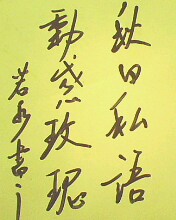 秋日私語
動感玫瑰
若水書